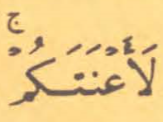 لَأَعْنَتَكُمْ ۚ